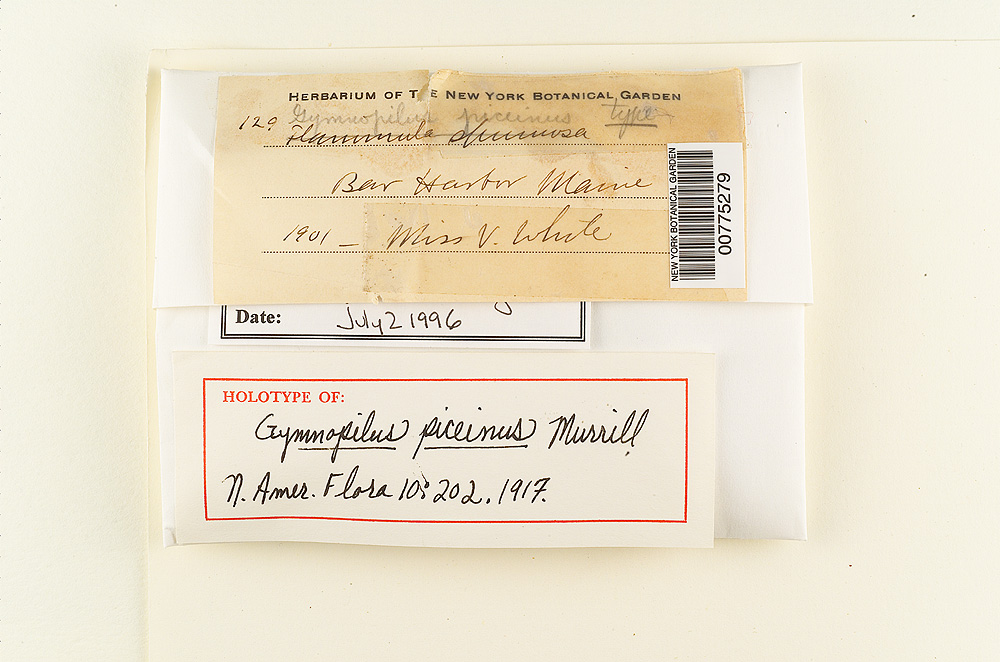 HERBARIUM OF THE NEW YORK BOTANICAL GARDEN
Gymnopilus piceinus type
129 Flammula spumosa
Bar Harbor Maine
1901 – Miss V. White
NEW YORK BOTANICAL GARDEN
00775279
Date: July 2 1996
HOLOTYPE OF:
Gymnopilus piceinus Murrill
N. Amer. Flora 10: 202. 1917.